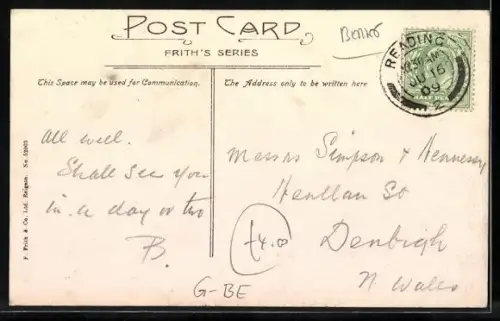 POST CARD
FRITH'S SERIES
Berks
This Space may be used for Communication.
The Address only to be written here
READING
JU 16
09
All well.
Shall see you
in a day or two
B.
Messrs Simpson + Hennessy
Henllan St
Denbigh
N Wales
£4.00
G-BE
F. Frith & Co. Ltd. Reigate. No.